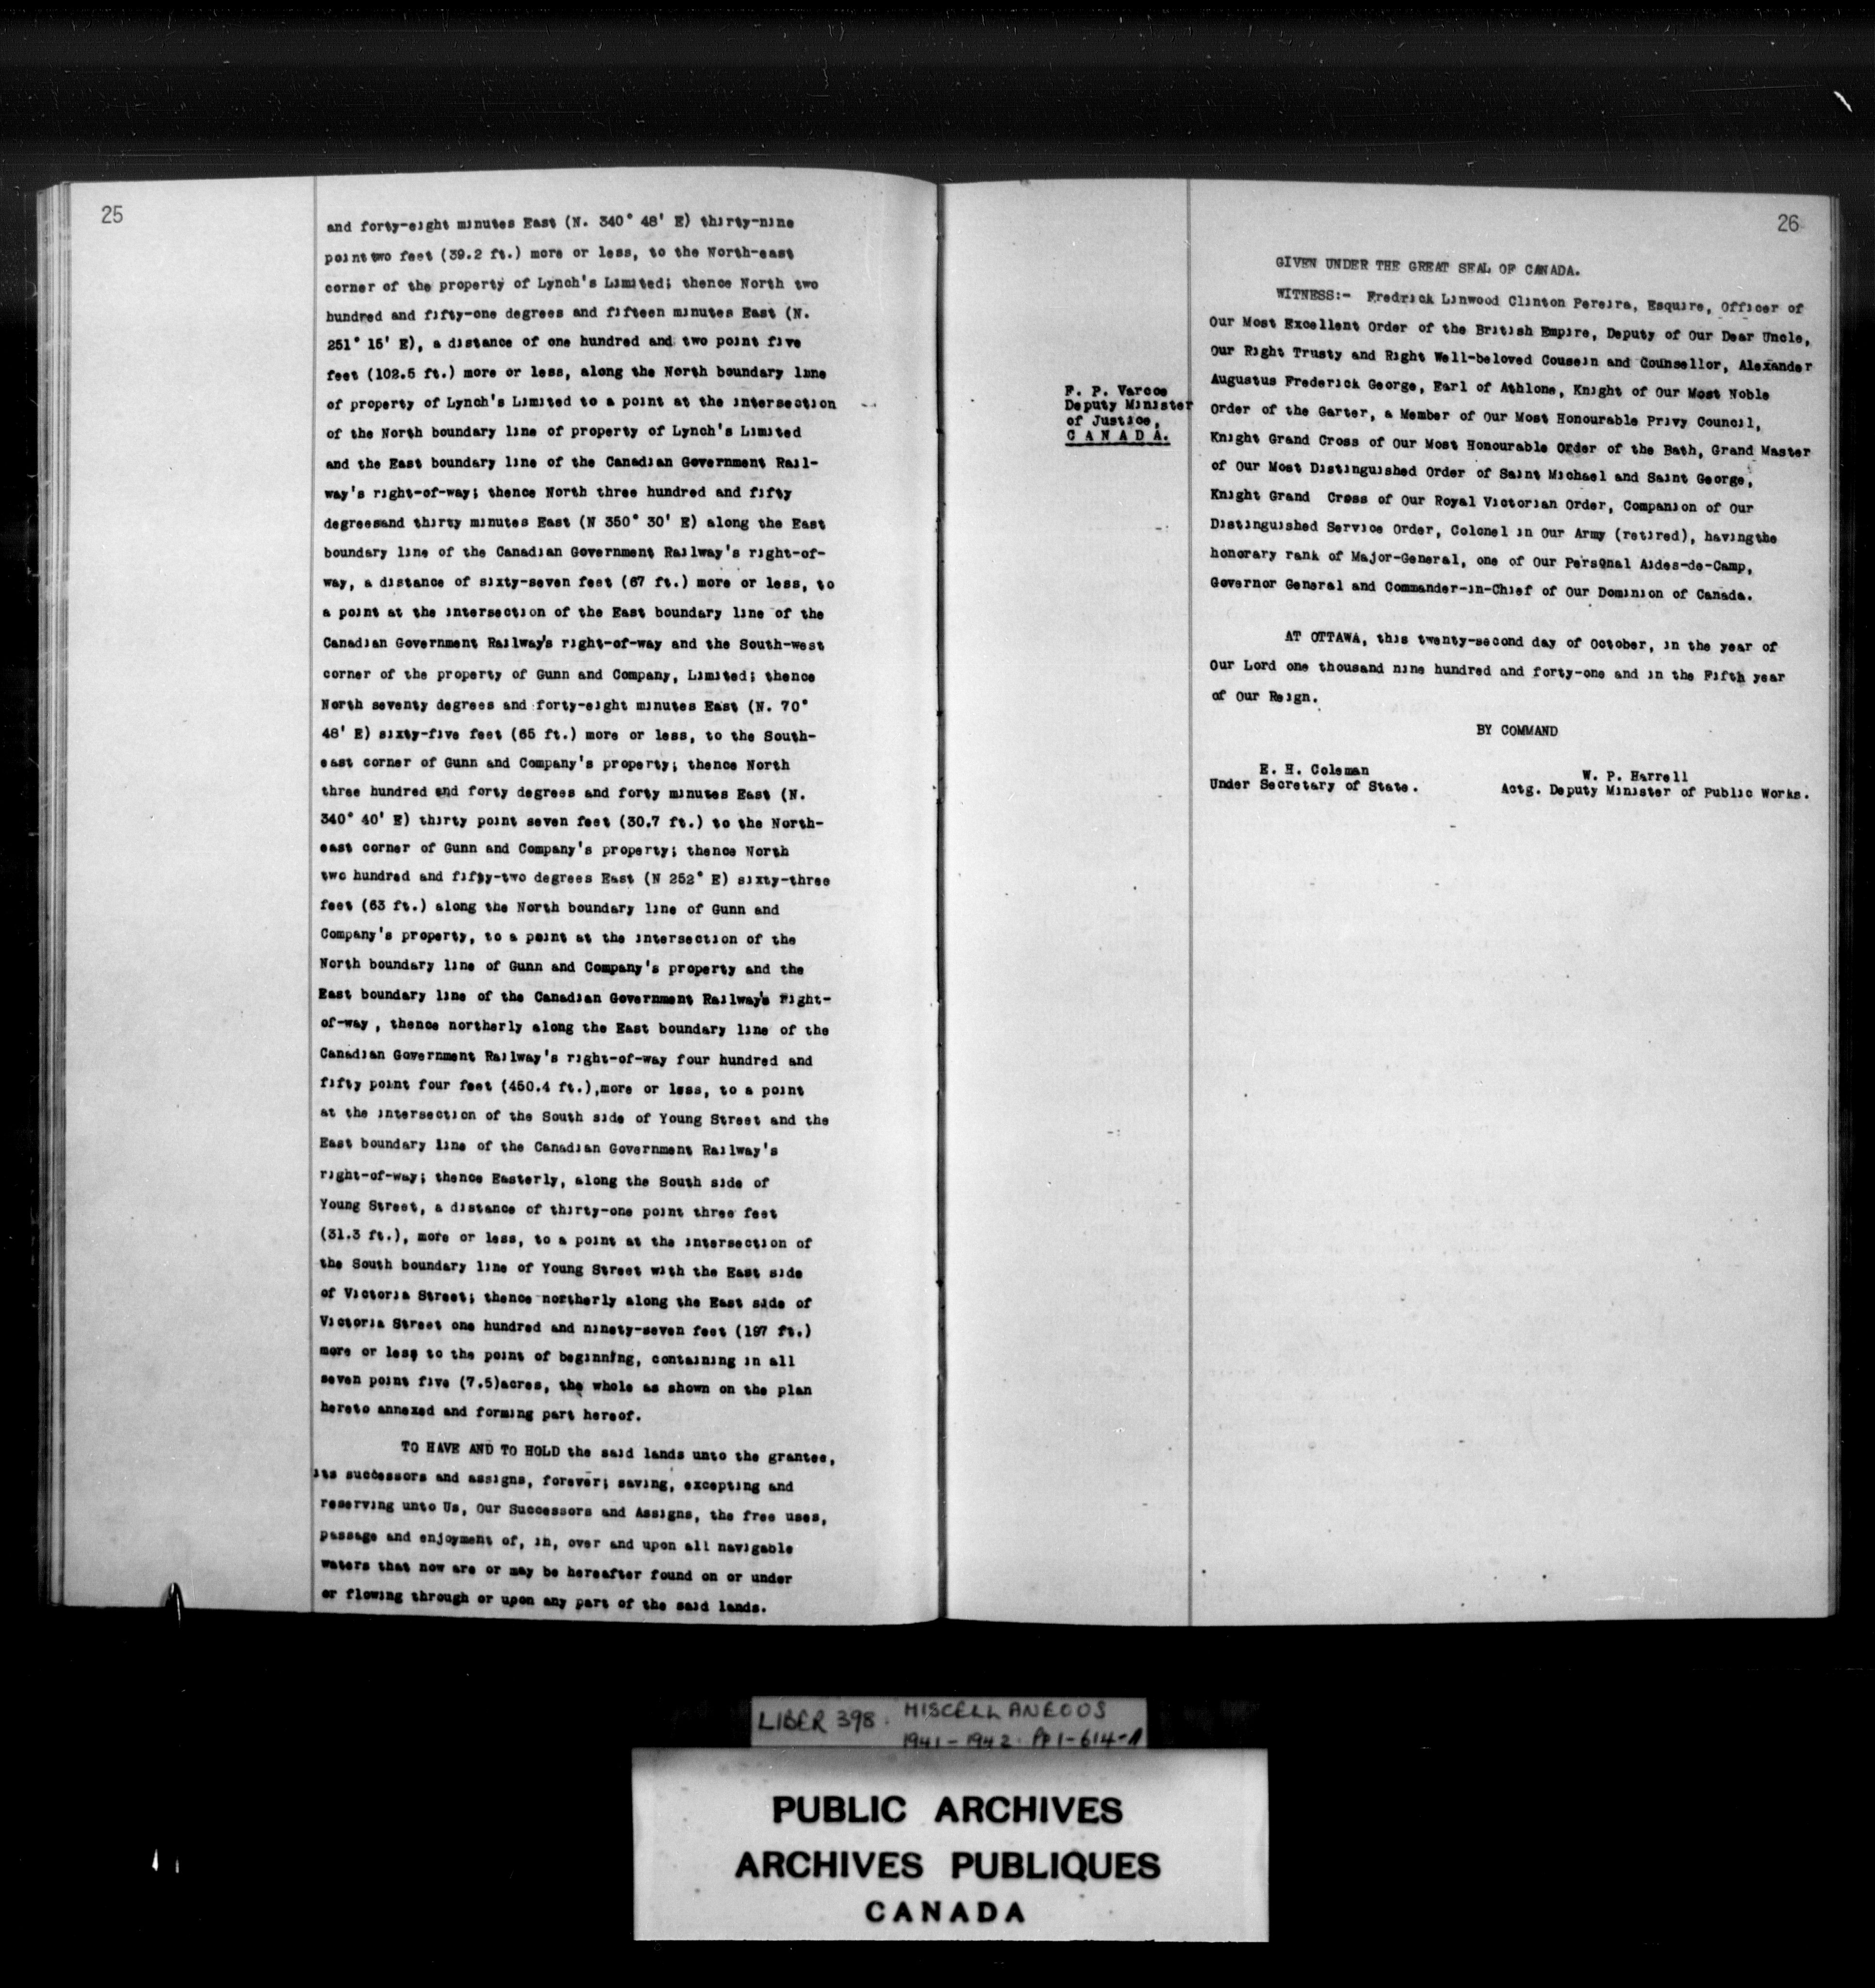 25
and forty-eight minutes East (N. 340° 48' E) thirty-nine
point two feet (39.2 ft.) more or less, to the North-east
corner of the property of Lynch's Limited; thence North two
hundred and fifty-one degrees and fifteen minutes East (N.
251° 15' E), a distance of one hundred and two point five
feet (102.5 ft.) more or less, along the North boundary line
of property of Lynch's Limited to a point at the intersection
of the North boundary line of property of Lynch's Limited
and the East boundary line of the Canadian Government Rail-
way's right-of-way; thence North three hundred and fifty
degreesand thirty minutes East (N 350° 30' E) along the East
boundary line of the Canadian Government Railway's right-of-
way, a distance of sixty-seven feet (67 ft.) more or less, to
a point at the intersection of the East boundary line of the
Canadian Government Railway's right-of-way and the South-west
corner of the property of Gunn and Company, Limited; thence
North seventy degrees and forty-eight minutes East (N. 70°
48' E) sixty-five feet (65 ft.) more or less, to the South-
east corner of Gunn and Company's property; thence North
three hundred and forty degrees and forty minutes East (N.
340° 40' E) thirty point seven feet (30.7 ft.) to the North-
east corner of Gunn and Company's property; thence North
two hundred and fifty-two degrees East (N 252° E) sixty-three
feet (63 ft.) along the North boundary line of Gunn and
Company's property, to a point at the intersection of the
North boundary line of Gunn and Company's property and the
East boundary line of the Canadian Government Railway's Right-
of-way, thence northerly along the East boundary line of the
Canadian Government Railway's right-of-way four hundred and
fifty point four feet (450.4 ft.),more or less, to a point
at the intersection of the South side of Young Street and the
East boundary line of the Canadian Government Railway's
right-of-way; thence Easterly, along the South side of
Young Street, a distance of thirty-one point three feet
(31.3 ft.), more or less, to a point at the intersection of
the South boundary line of Young Street with the East side
of Victoria Street; thence northerly along the East side of
Victoria Street one hundred and ninety-seven feet (197 ft.)
more or less to the point of beginning, containing in all
seven point five (7.5)acres, the whole as shown on the plan
hereto annexed and forming part hereof.
TO HAVE AND TO HOLD the said lands unto the grantee,
its successors and assigns, forever; saving, excepting and
reserving unto Us, Our Successors and Assigns, the free uses,
passage and enjoyment of, in, over and upon all navigable
waters that now are or may be hereafter found on or under
or flowing through or upon any part of the said lands.
26
GIVEN UNDER THE GREAT SEAL OF CANADA.
WITNESS:- Fredrick Linwood Clinton Pereira, Esquire, Officer of
Our Most Excellent Order of the British Empire, Deputy of Our Dear Uncle,
Our Right Trusty and Right Well-beloved Cousein and Counsellor, Alexander
Augustus Frederick George, Earl of Athlone, Knight of Our Most Noble
Order of the Garter, a Member of Our Most Honourable Privy Council,
Knight Grand Cross of Our Most Honourable Order of the Bath, Grand Master
of Our Most Distinguished Order of Saint Michael and Saint George,
Knight Grand Cross of Our Royal Victorian Order, Companion of Our
Distinguished Service Order, Colonel in Our Army (retired), havingthe
honorary rank of Major-General, one of Our Personal Aides-de-Camp,
Governor General and Commander-in-Chief of Our Dominion of Canada.
F. P. Varcoe
Deputy Minister
of Justice,
CANADA.
AT OTTAWA, this twenty-second day of October, in the year of
Our Lord one thousand nine hundred and forty-one and in the Fifth year
of Our Reign.
BY COMMAND
E. H. Coleman
Under Secretary of State.
W. P. Harrell
Actg. Deputy Minister of Public Works.
LIBER 398. MISCELLANEOUS
1941-1942. Pp 1-614-A
PUBLIC ARCHIVES
ARCHIVES PUBLIQUES
CANADA